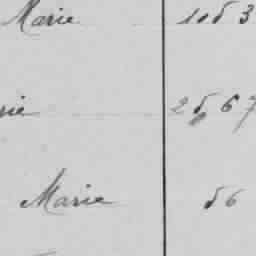 Marie 1053
rie 2567
Marie 56